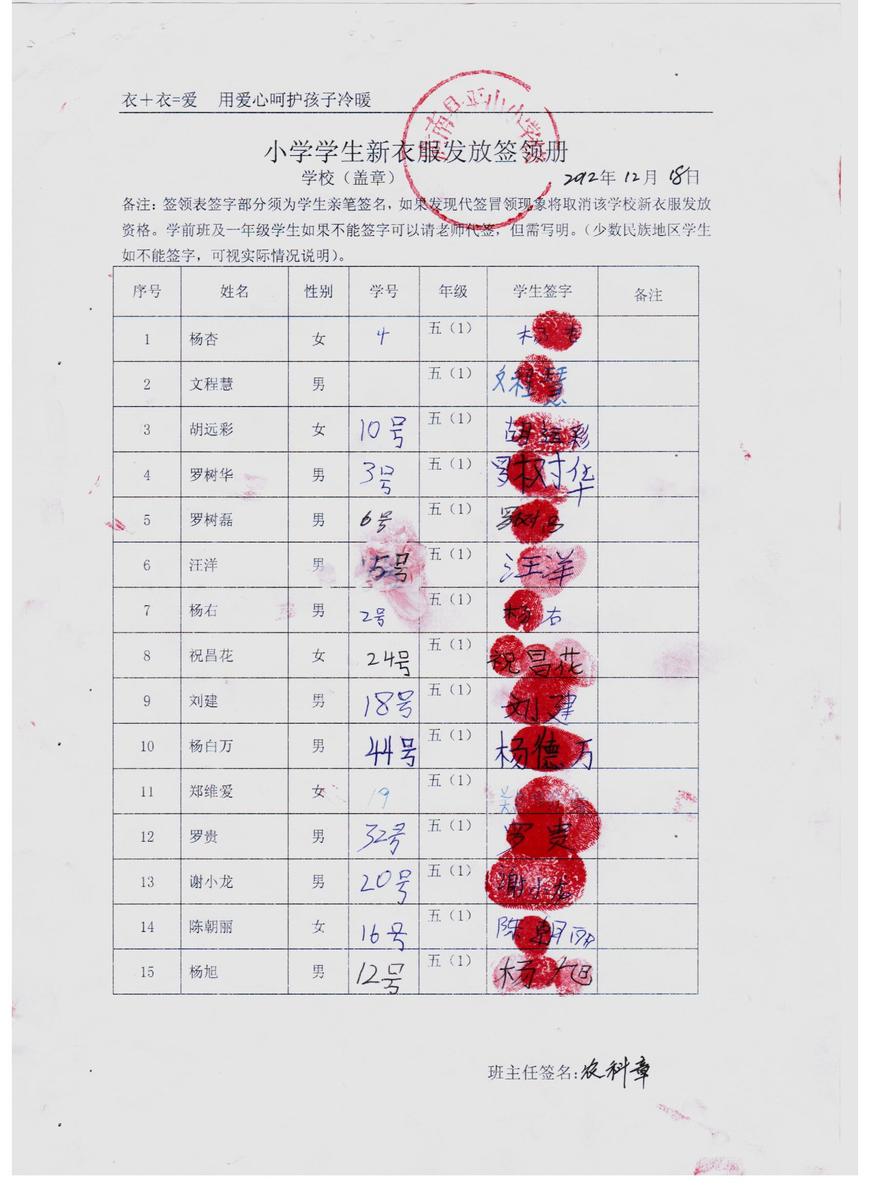 衣+衣=爱 用爱心呵护孩子冷暖
小学学生新衣服发放签领册
学校（盖章） 2012年 12月 18日
备注：签领表签字部分须为学生亲笔签名，如果发现代签冒领现象将取消该学校新衣服发放
资格。学前班及一年级学生如果不能签字可以请老师代签，但需写明。（少数民族地区学生
如不能签字，可视实际情况说明）。
序号 姓名 性别 学号 年级 学生签字 备注
1 杨杏 女 4 五（1） 杨
2 文程慧 男 五（1） 文程慧
3 胡远彩 女 10号 五（1） 胡远彩
4 罗树华 男 3号 五（1） 罗树华
5 罗树磊 男 6号 五（1） 罗树
6 汪洋 男 15号 五（1） 汪洋
7 杨右 男 2号 五（1） 杨右
8 祝昌花 女 24号 五（1） 祝昌花
9 刘建 男 18号 五（1） 刘建
10 杨白万 男 44号 五（1） 杨德万
11 郑维爱 女 19 五（1）
12 罗贵 男 32号 五（1） 罗贵
13 谢小龙 男 20号 五（1） 谢小龙
14 陈朝丽 女 16号 五（1） 陈朝丽
15 杨旭 男 12号 五（1） 杨旭
班主任签名：农科章